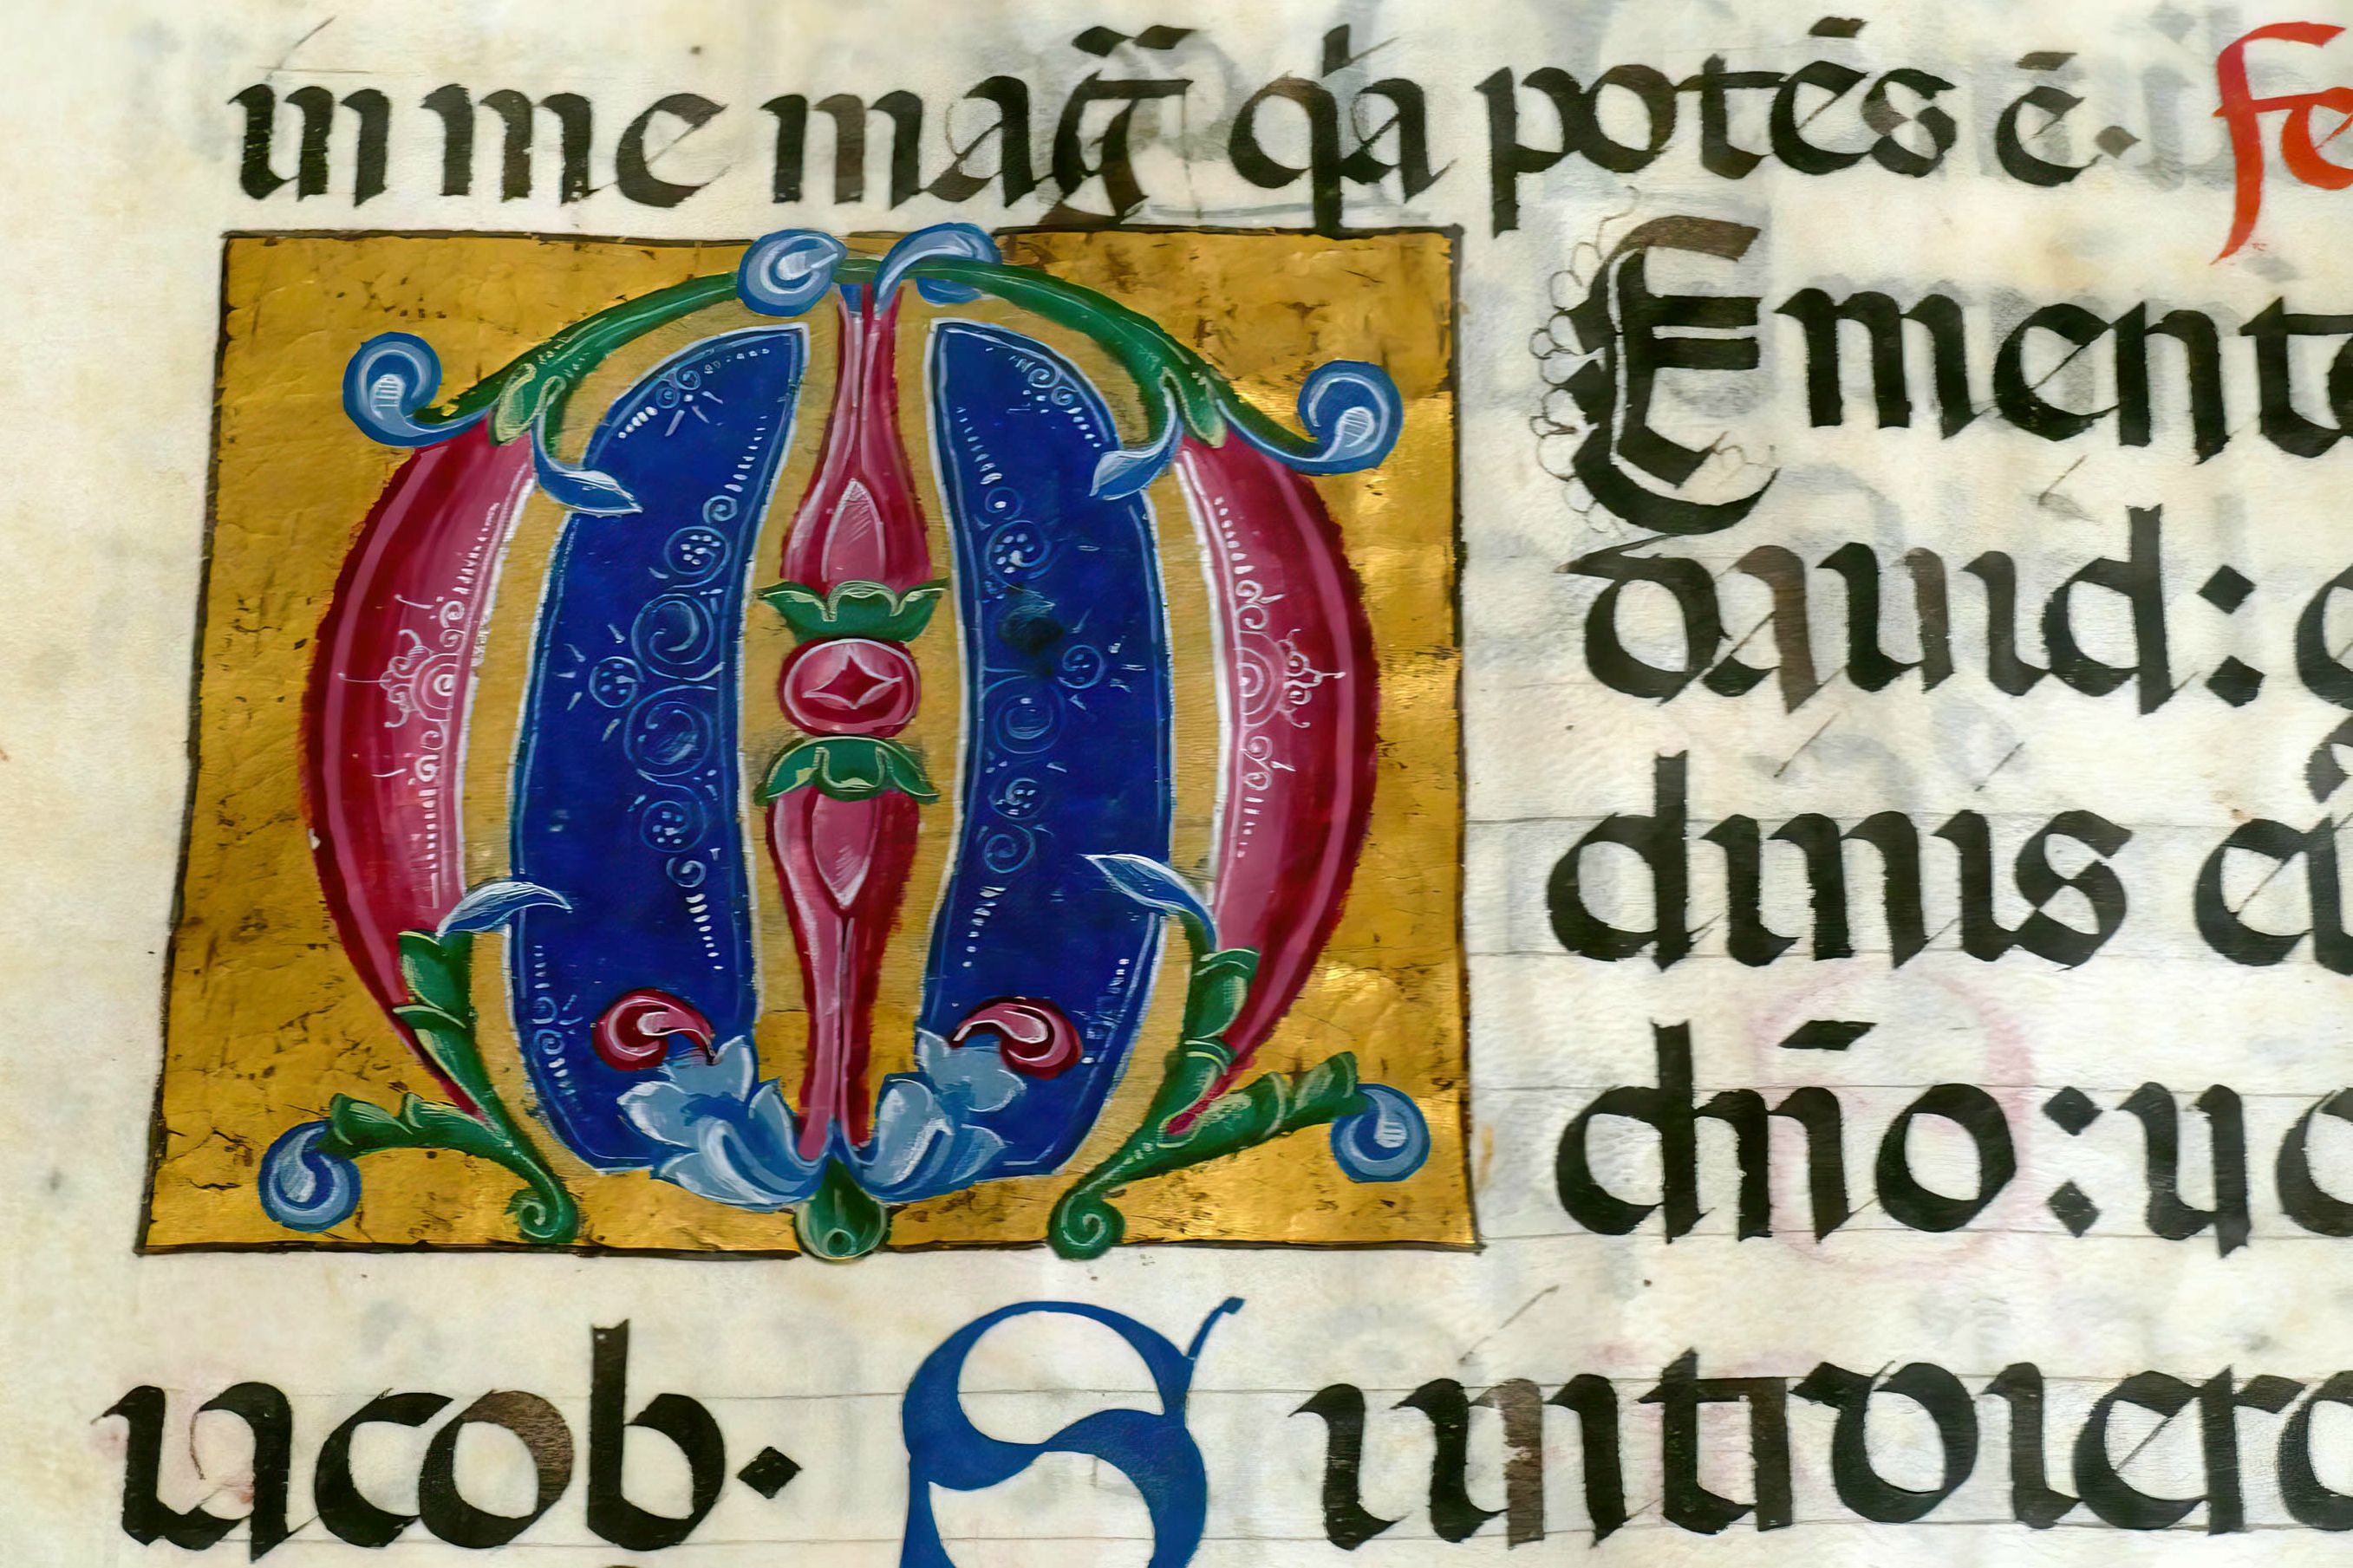 in me mag̃ qa potēs ē. fe
MEmento
dauid:
dnīs ei
dnō: uo
iacob. Si introiero